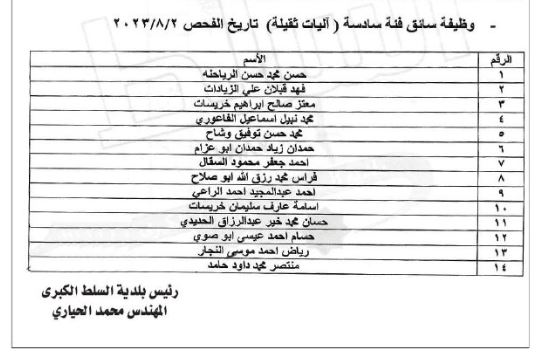 - وظيفة سائق فئة سادسة (آليات ثقيلة) تاريخ الفحص ٢٠٢٣/٨/٢
الرقم الأسم
١ حسن محمد حسن الرياحنه
٢ فهد قبلان علي الزيادات
٣ معتز صالح ابراهيم خريسات
٤ محمد نبيل اسماعيل الفاعوري
٥ محمد حسن توفيق وشاح
٦ حمدان زياد حمدان ابو عزام
٧ احمد جعفر محمود السقال
٨ فراس محمد رزق الله ابو صلاح
٩ احمد عبدالمجيد احمد الراعي
١٠ اسامة عارف سليمان خريسات
١١ حسان محمد خير عبدالرزاق الحديدي
١٢ حسام احمد عيسى ابو صوي
١٣ رياض احمد موسى النجار
١٤ منتصر محمد داود حامد
رئيس بلدية السلط الكبرى
المهندس محمد الحياري